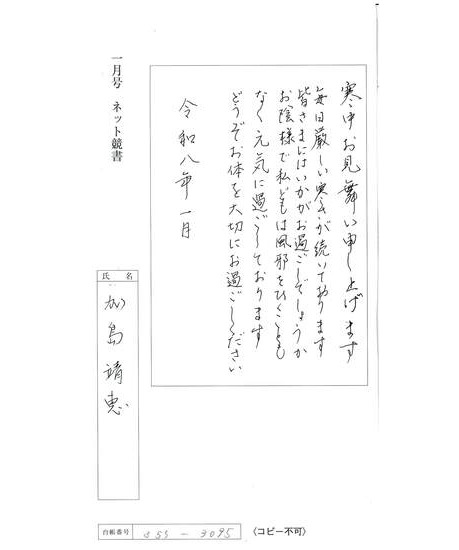 寒中お見舞い申し上げます
毎日厳しい寒さが続いております
皆さまにはいかがお過ごしでしょうか
お陰様で私どもは風邪をひくことも
なく元気に過ごしております
どうぞお体を大切にお過ごしください
令和八年一月
一月号 ネット競書
氏名
加島靖恵
台帳番号 055-3095
〈コピー不可〉